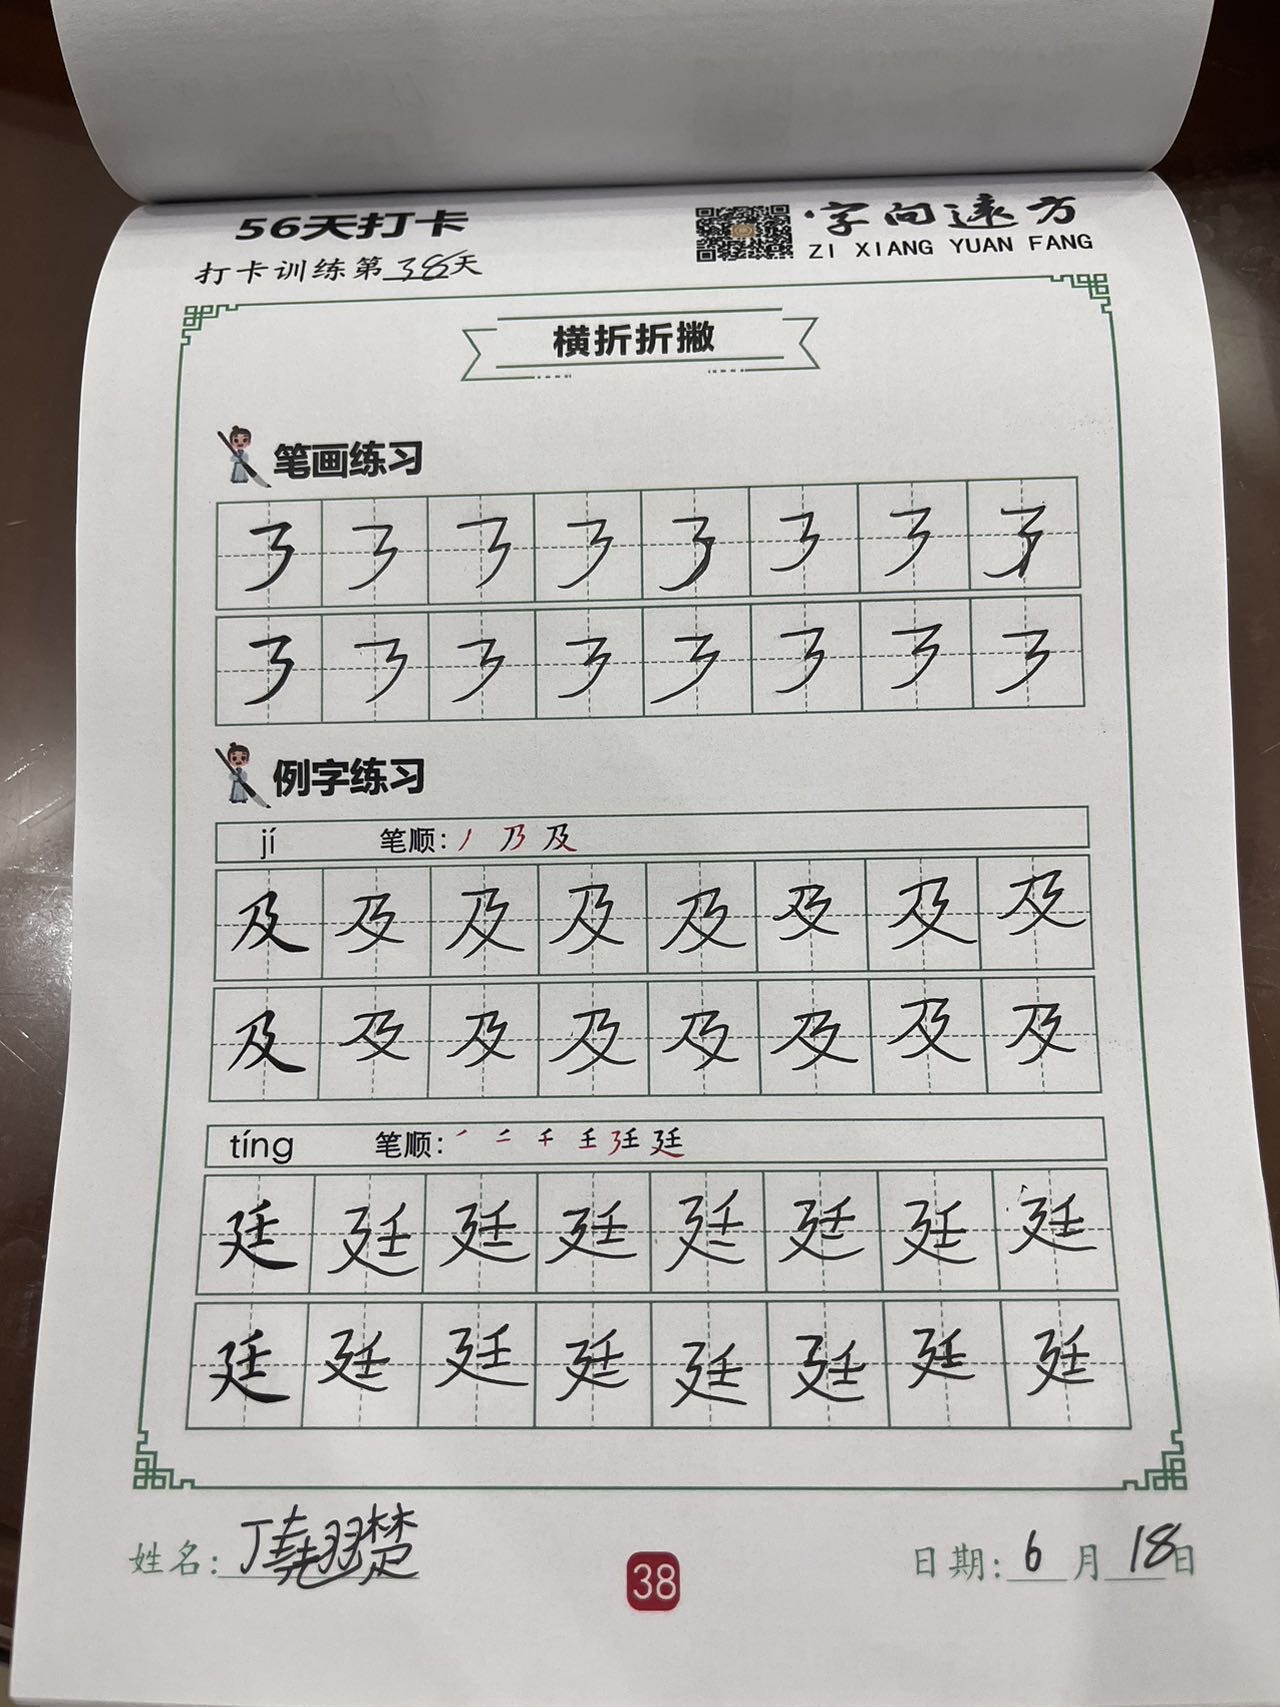 56天打卡
字向远方
ZI XIANG YUAN FANG
打卡训练第38天
横折折撇
笔画练习
㇋ ㇋ ㇋ ㇋ ㇋ ㇋ ㇋ ㇋
㇋ ㇋ ㇋ ㇋ ㇋ ㇋ ㇋ ㇋
例字练习
jí 笔顺: 丿 乃 及
及 及 及 及 及 及 及 及
及 及 及 及 及 及 及 及
tíng 笔顺:
廷 廷 廷 廷 廷 廷 廷 廷
廷 廷 廷 廷 廷 廷 廷 廷
姓名:
38
日期: 6 月 18 日